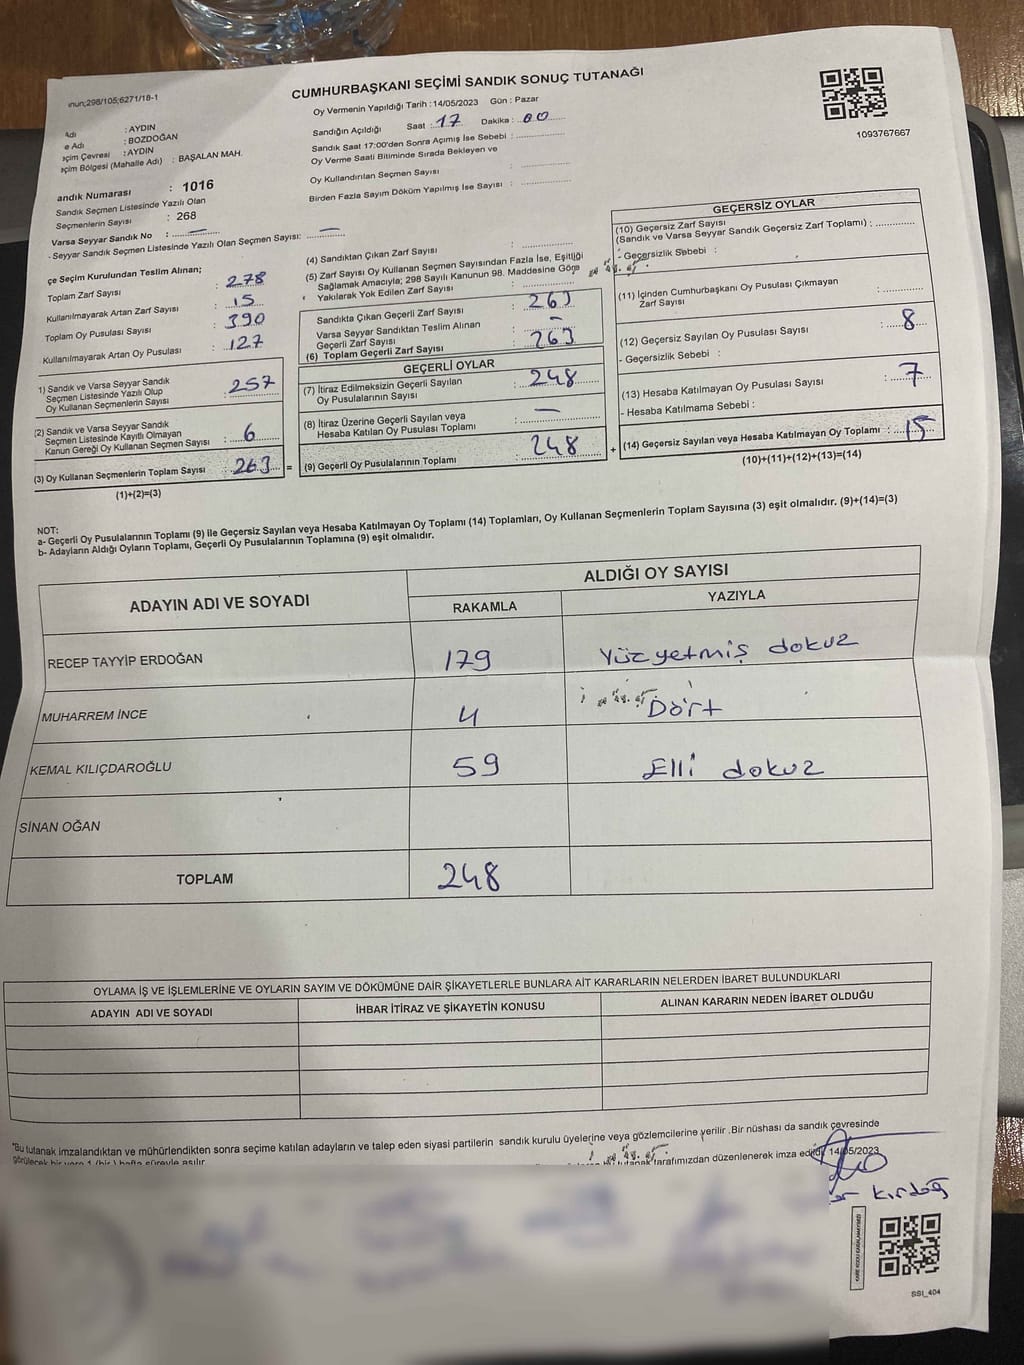 CUMHURBAŞKANI SEÇİMİ SANDIK SONUÇ TUTANAĞI
298/105;6271/18-1
Oy Vermenin Yapıldığı Tarih : 14/05/2023 Gün : Pazar
: AYDIN
: BOZDOĞAN
Seçim Çevresi : AYDIN
Seçim Bölgesi (Mahalle Adı) : BAŞALAN MAH.
Sandığın Açıldığı Saat : 17 Dakika : 00
Sandık Saat 17:00'den Sonra Açımış İse Sebebi :
Oy Verme Saati Bitiminde Sırada Bekleyen ve
Oy Kullandırılan Seçmen Sayısı :
Birden Fazla Sayım Döküm Yapılmış İse Sayısı :
1093767667
andık Numarası : 1016
Sandık Seçmen Listesinde Yazılı Olan
Seçmenlerin Sayısı : 268
Varsa Seyyar Sandık No : —
- Seyyar Sandık Seçmen Listesinde Yazılı Olan Seçmen Sayısı: —
çe Seçim Kurulundan Teslim Alınan;
Toplam Zarf Sayısı : 278
Kullanılmayarak Artan Zarf Sayısı : 15
Toplam Oy Pusulası Sayısı : 390
Kullanılmayarak Artan Oy Pusulası : 127
1) Sandık ve Varsa Seyyar Sandık
Seçmen Listesinde Yazılı Olup
Oy Kullanan Seçmenlerin Sayısı : 257
(2) Sandık ve Varsa Seyyar Sandık
Seçmen Listesinde Kayıtlı Olmayan
Kanun Gereği Oy Kullanan Seçmen Sayısı : 6
(3) Oy Kullanan Seçmenlerin Toplam Sayısı : 263 =
(1)+(2)=(3)
(4) Sandıktan Çıkan Zarf Sayısı :
(5) Zarf Sayısı Oy Kullanan Seçmen Sayısından Fazla İse, Eşitliği
Sağlamak Amacıyla; 298 Sayılı Kanunun 98. Maddesine Göre
Yakılarak Yok Edilen Zarf Sayısı :
Sandıkta Çıkan Geçerli Zarf Sayısı : 263
Varsa Seyyar Sandıktan Teslim Alınan
Geçerli Zarf Sayısı : —
(6) Toplam Geçerli Zarf Sayısı : 263
GEÇERLİ OYLAR
(7) İtiraz Edilmeksizin Geçerli Sayılan
Oy Pusulalarının Sayısı : 248
(8) İtiraz Üzerine Geçerli Sayılan veya
Hesaba Katılan Oy Pusulası Toplamı : —
(9) Geçerli Oy Pusulalarının Toplamı : 248 +
GEÇERSİZ OYLAR
(10) Geçersiz Zarf Sayısı
(Sandık ve Varsa Seyyar Sandık Geçersiz Zarf Toplamı) :
- Geçersizlik Sebebi :
(11) İçinden Cumhurbaşkanı Oy Pusulası Çıkmayan
Zarf Sayısı :
(12) Geçersiz Sayılan Oy Pusulası Sayısı : 8
- Geçersizlik Sebebi :
(13) Hesaba Katılmayan Oy Pusulası Sayısı : 7
- Hesaba Katılmama Sebebi :
(14) Geçersiz Sayılan veya Hesaba Katılmayan Oy Toplamı : 15
(10)+(11)+(12)+(13)=(14)
NOT:
a- Geçerli Oy Pusulalarının Toplamı (9) ile Geçersiz Sayılan veya Hesaba Katılmayan Oy Toplamı (14) Toplamları, Oy Kullanan Seçmenlerin Toplam Sayısına (3) eşit olmalıdır. (9)+(14)=(3)
b- Adayların Aldığı Oyların Toplamı, Geçerli Oy Pusulalarının Toplamına (9) eşit olmalıdır.
ADAYIN ADI VE SOYADI
ALDIĞI OY SAYISI
RAKAMLA YAZIYLA
RECEP TAYYİP ERDOĞAN 179 Yüzyetmiş dokuz
MUHARREM İNCE 4 Dört
KEMAL KILIÇDAROĞLU 59 Elli dokuz
SİNAN OĞAN
TOPLAM 248
OYLAMA İŞ VE İŞLEMLERİNE VE OYLARIN SAYIM VE DÖKÜMÜNE DAİR ŞİKAYETLERLE BUNLARA AİT KARARLARIN NELERDEN İBARET BULUNDUKLARI
ADAYIN ADI VE SOYADI İHBAR İTİRAZ VE ŞİKAYETİN KONUSU ALINAN KARARIN NEDEN İBARET OLDUĞU
*Bu tutanak imzalandıktan ve mühürlendikten sonra seçime katılan adayların ve talep eden siyasi partilerin sandık kurulu üyelerine veya gözlemcilerine verilir .Bir nüshası da sandık çevresinde
görülecek bir yere 1 (bir) hafta süreyle asılır. tutanak tarafımızdan düzenlenerek imza edildi. 14/05/2023
SSI_404